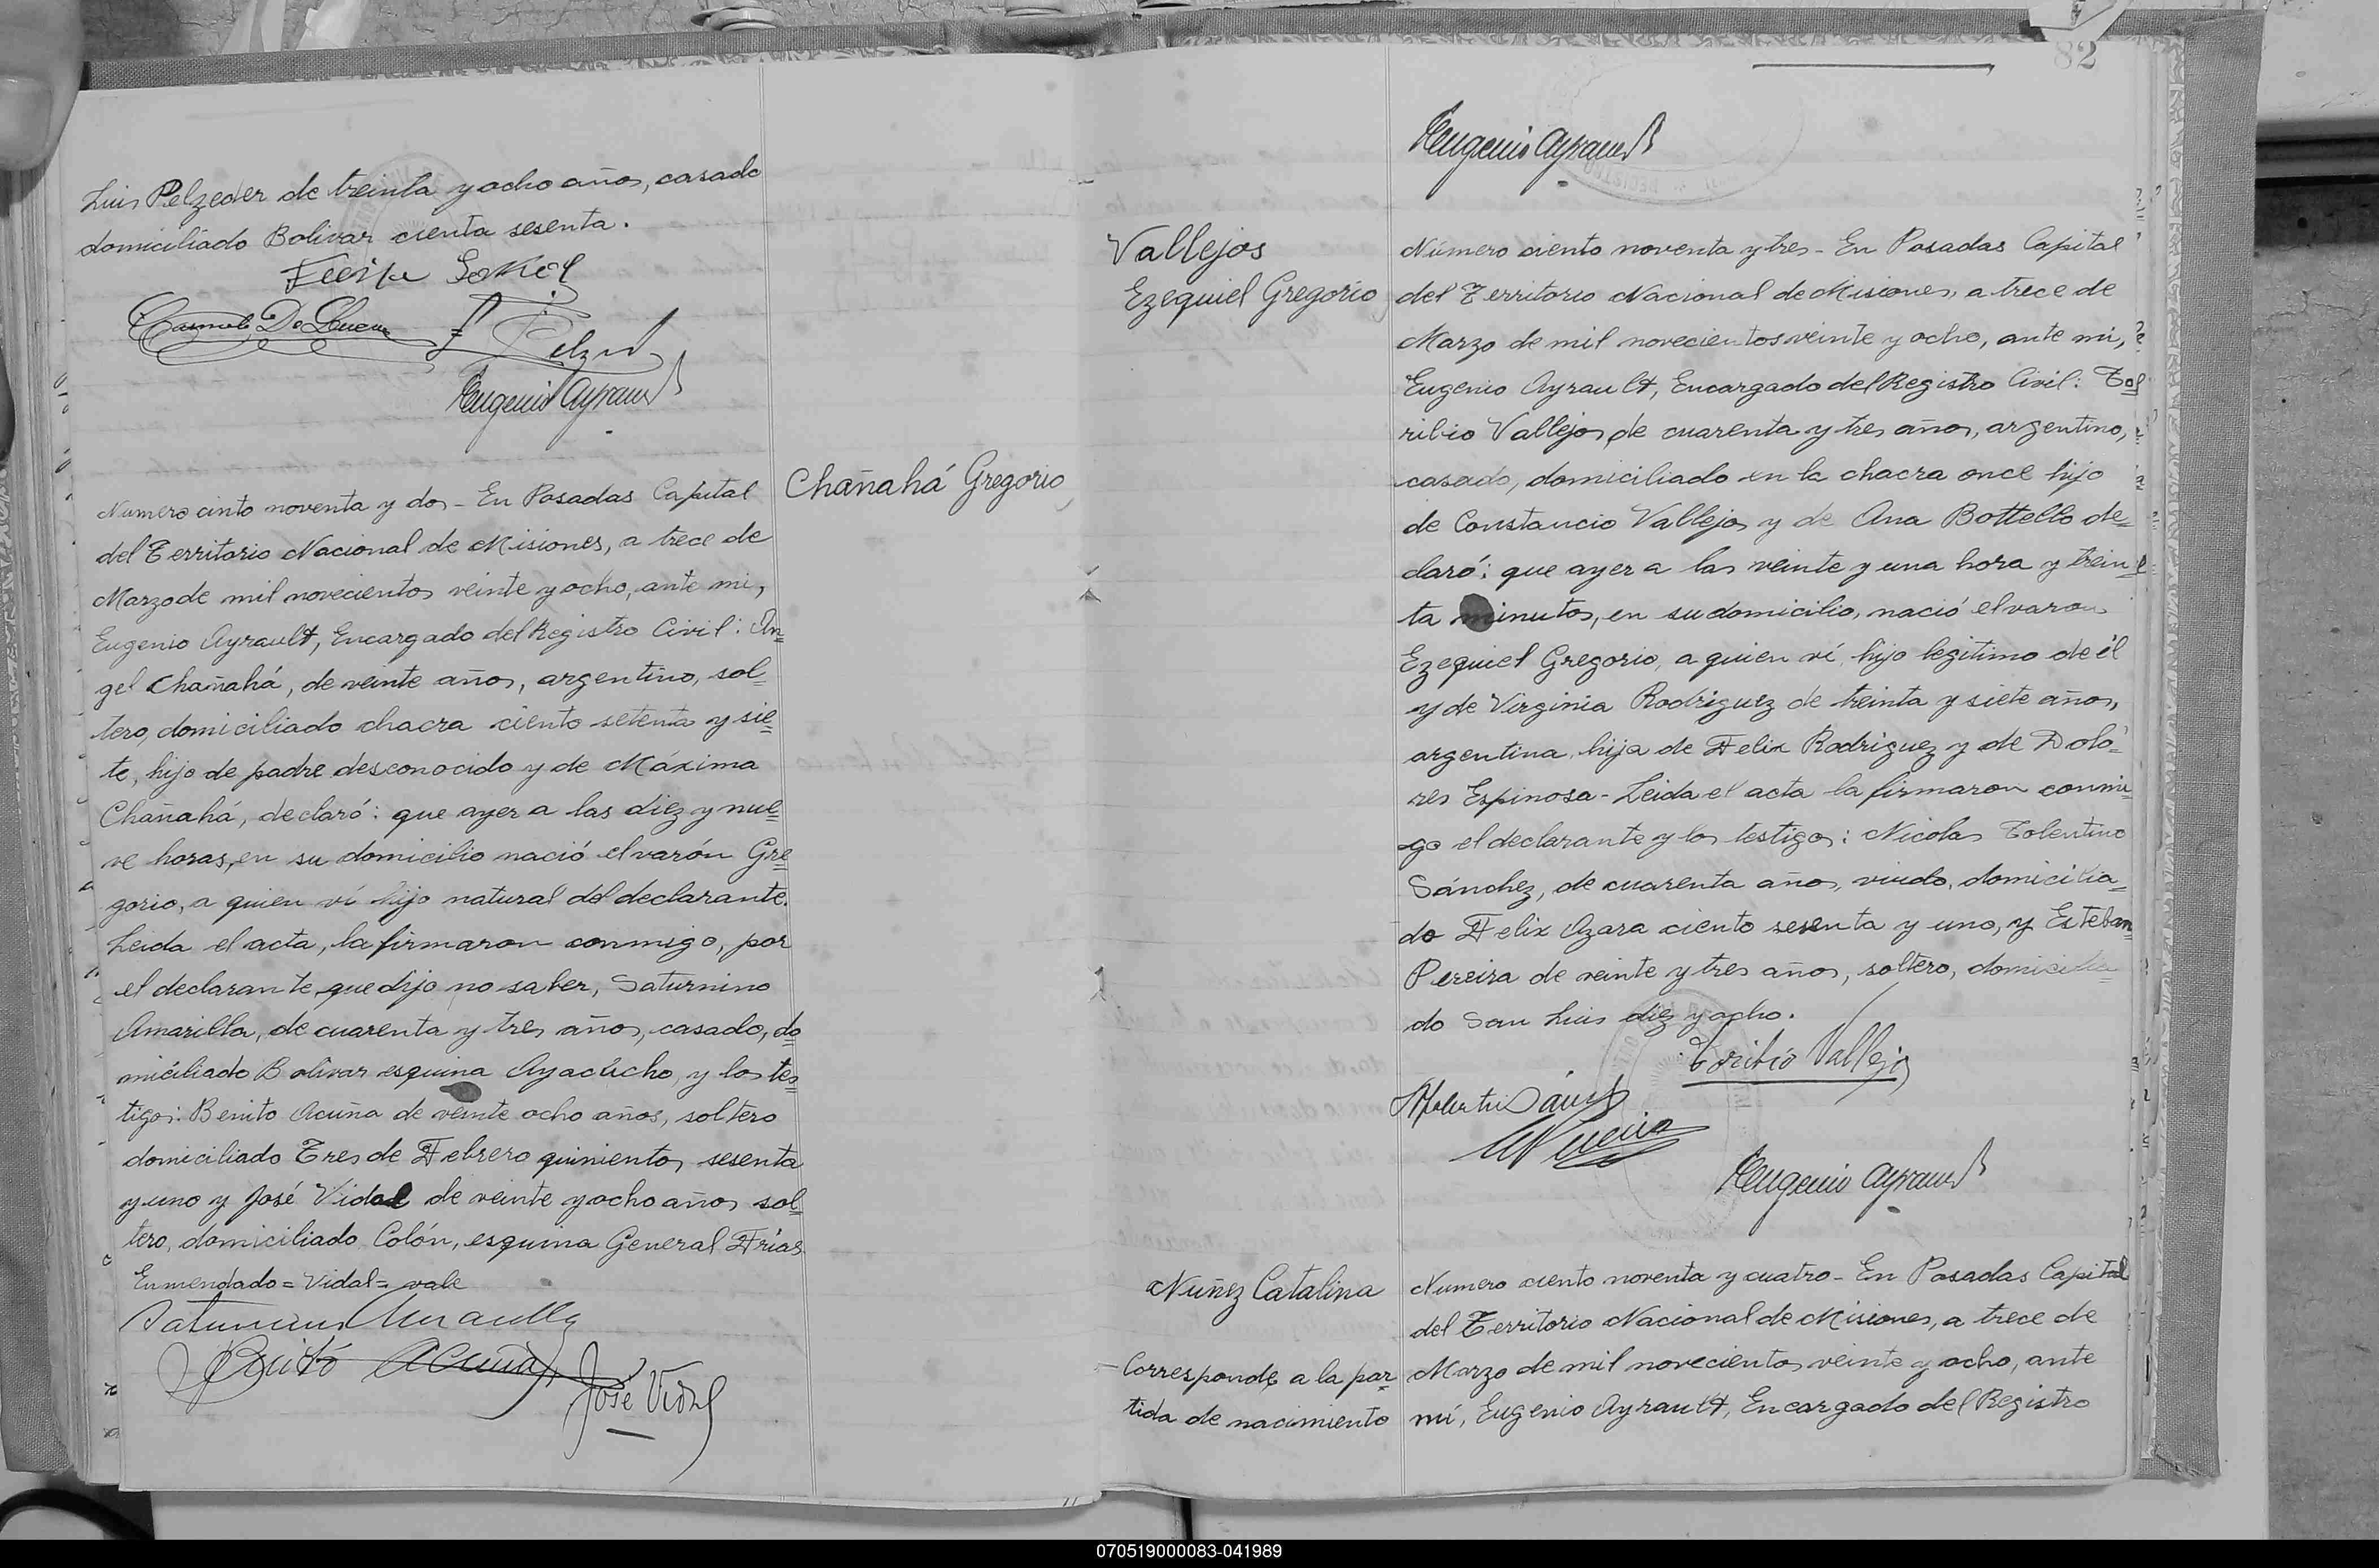 Luis Pelzeder de treinta y ocho años, casado
domiciliado Bolivar cienta sesenta.
Carmelo De Lucca
Eugenio Ayrault
Chañahá Gregorio
Numero cinto noventa y dos - En Posadas Capital
del Territorio Nacional de Misiones, a trece de
Marzo de mil novecientos veinte y ocho, ante mi,
Eugenio Ayrault, Encargado del Registro Civil: An=
gel Chañahá, de veinte años, argentino, sol=
tero, domiciliado chacra ciento setenta y sie=
te, hijo de padre desconocido y de Máxima
Chañahá, declaró: que ayer a las diez y nue=
ve horas, en su domicilio nació el varón Gre
gorio, a quien ví hijo natural del declarante.
Leida el acta, la firmaron conmigo, por
el declarante que dijo no saber, Saturnino
Amarilla, de cuarenta y tres años, casado, do
miciliado Bolivar esquina Ayacúcho, y los tes
tigos: Benito Acuña de veinte ocho años, soltero
domiciliado Tres de Febrero quinientos sesenta
y uno y José Vidal de veinte y ocho años sol
tero, domiciliado Colón, esquina General Frias
Enmendado = Vidal = vale
Saturnino Amarilla
Benito Acuña
José Vidal
82
Eugenio Ayrault
Vallejos
Ezequiel Gregorio
Número ciento noventa y tres - En Posadas Capital
del Territorio Nacional de Misiones, a trece de
Marzo de mil novecientos veinte y ocho, ante mi,
Eugenio Ayrault, Encargado del Registro Civil: To=
ribio Vallejos, de cuarenta y tres años, argentino,
casado, domiciliado en la chacra once hijo
de Constancio Vallejos y de Ana Bottello de=
claró: que ayer a las veinte y una hora y trein
ta minutos, en su domicilio, nació el varon
Ezequiel Gregorio, a quien ví, hijo legitimo de él
y de Virginia Rodriguez de treinta y siete años,
argentina, hija de Felix Rodriguez y de Dolo=
res Espinosa - Leida el acta la firmaron conmi
go el declarante y los testigos: Nicolas Tolentino
Sánchez, de cuarenta años, viudo, domicilia=
do Felix Azara ciento sesenta y uno, y Esteban
Pereira de veinte y tres años, soltero, domicilia
do San Luis diez y ocho.
Toribio Vallejos
Eugenio Ayrault
Nuñez Catalina
Corresponde a la par
tida de nacimiento
Numero ciento noventa y cuatro - En Posadas Capital
del Territorio Nacional de Misiones, a trece de
Marzo de mil novecientos veinte y ocho, ante
mí, Eugenio Ayrault, Encargado del Registro
070519000083-041989